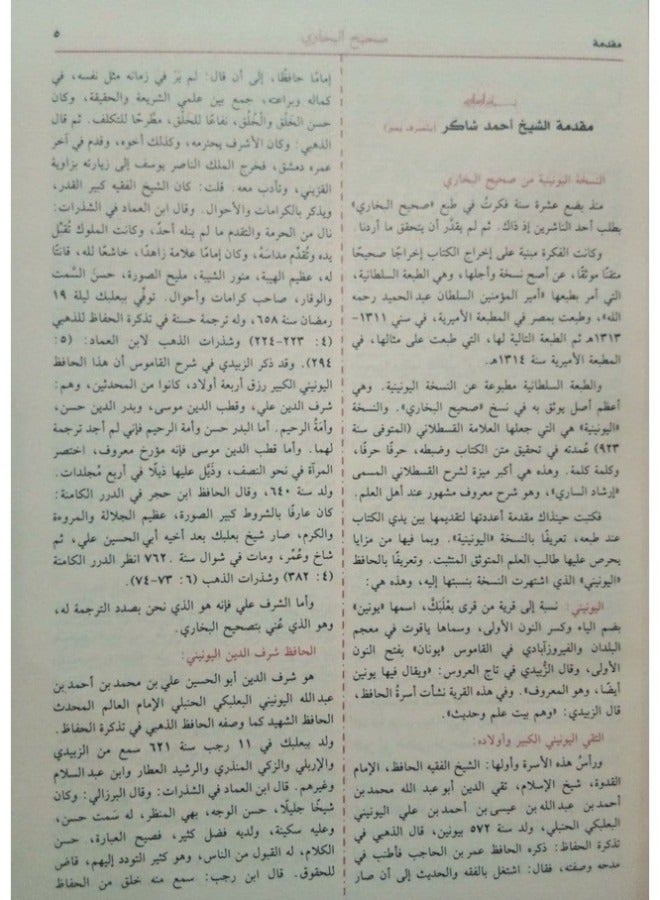 مقدمة
صحيح البخاري
٥
مقدمة الشيخ أحمد شاكر (بتصرف يسير)
النسخة اليونينية من صحيح البخاري
منذ بضع عشرة سنة فكرتُ في طبع «صحيح البخاري»
بطلب أحد الناشرين إذ ذاك. ثم لم يقدَّر أن يتحقق ما أردنا.
وكانت الفكرة مبنية على إخراج الكتاب إخراجًا صحيحًا
متقنًا موثقًا، عن أصح نسخة وأجلها، وهي الطبعة السلطانية،
التي أمر بطبعها «أمير المؤمنين السلطان عبد الحميد رحمه
الله»، وطبعت بمصر في المطبعة الأميرية، في سني ١٣١١-
١٣١٣هـ ثم الطبعة التالية لها، التي طبعت على مثالها، في
المطبعة الأميرية سنة ١٣١٤هـ.
والطبعة السلطانية مطبوعة عن النسخة اليونينية. وهي
أعظم أصل يوثق به في نسخ «صحيح البخاري». والنسخة
«اليونينية» هي التي جعلها العلامة القسطلاني (المتوفى سنة
٩٢٣) عُمدته في تحقيق متن الكتاب وضبطه، حرفًا حرفًا،
وكلمة كلمة. وهذه هي أكبر ميزة لشرح القسطلاني المسمى
«إرشاد الساري»، وهو شرح معروف مشهور عند أهل العلم.
فكتبت حينذاك مقدمة أعددتها لتقديمها بين يدي الكتاب
عند طبعه، تعريفًا بالنسخة «اليونينية». وبما فيها من مزايا
يحرص عليها طالب العلم المتوثق المتثبت. وتعريفًا بالحافظ
«اليونيني» الذي اشتهرت النسخة بنسبتها إليه، وهذه هي:
اليونيني: نسبة إلى قرية من قرى بعْلَبَكَّ، اسمها «يونين»
بضم الياء وكسر النون الأولى، وسماها ياقوت في معجم
البلدان والفيروزآبادي في القاموس «يونان» بفتح النون
الأولى، وقال الزَّبيدي في تاج العروس: «ويقال فيها يونين
أيضًا، وهو المعروف». وفي هذه القرية نشأت أسرةُ الحافظ،
قال الزبيدي: «وهم بيت علم وحديث».
التقي اليونيني الكبير وأولاده:
ورأسُ هذه الأسرة وأولها: الشيخ الفقيه الحافظ، الإمام
القدوة، شيخ الإسلام، تقي الدين أبو عبد الله محمد بن
أحمد بن عبد الله بن عيسى بن أحمد بن علي اليونيني
البعلبكي الحنبلي، ولد سنة ٥٧٢ بيونين، قال الذهبي في
تذكرة الحفاظ: ذكره الحافظ عمر بن الحاجب فأطنب في
مدحه وصفته، فقال: اشتغل بالفقه والحديث إلى أن صار
إمامًا حافظًا، إلى أن قال: لم يرَ في زمانه مثل نفسه، في
كماله وبراعته، جمع بين علمي الشريعة والحقيقة، وكان
حسن الخَلْق والخُلُق، نفاعًا للخَلْق، مطَّرحًا للتكلف. ثم قال
الذهبي: وكان الأشرف يحترمه، وكذلك أخوه، وقدم في آخر
عمره دمشق، فخرج الملك الناصر يوسف إلى زيارته بزاوية
القزيني، وتأدب معه. قلت: كان الشيخ الفقيه كبير القدر،
ويذكر بالكرامات والأحوال. وقال ابن العماد في الشذرات:
نال من الحرمة والتقدم ما لم ينله أحدٌ، وكانت الملوك تُقبِّل
يده وتُقدِّم مداسَه، وكان إمامًا علامة زاهدًا، خاشعًا لله، قانتًا
له، عظيم الهيبة، منور الشيبة، مليح الصورة، حسنَ السَّمت
والوقار، صاحب كرامات وأحوال. توفِّي ببعلبك ليلة ١٩
رمضان سنة ٦٥٨، وله ترجمة حسنة في تذكرة الحفاظ للذهبي
(٤: ٢٢٣-٢٢٤) وشذرات الذهب لابن العماد: (٥:
٢٩٤). وقد ذكر الزبيدي في شرح القاموس أن هذا الحافظ
اليونيني الكبير رزق أربعة أولاد، كانوا من المحدثين، وهم:
شرف الدين علي، وقطب الدين موسى، وبدر الدين حسن،
وأمَةُ الرحيم. أما البدر حسن وأمة الرحيم فإني لم أجد ترجمة
لهما. وأما قطب الدين موسى فإنه مؤرخ معروف، اختصر
المرآة في نحو النصف، وذَيَّل عليها ذيلًا في أربع مُجلدات.
ولد سنة ٦٤٠، وقال الحافظ ابن حجر في الدرر الكامنة:
كان عارفًا بالشروط كبير الصورة، عظيم الجلالة والمروءة
والكرم، صار شيخ بعلبك بعد أخيه أبي الحسين علي، ثم
شاخ وعُمِّر، ومات في شوال سنة ٧٦٢. انظر الدرر الكامنة
(٤: ٣٨٢) وشذرات الذهب (٦: ٧٣-٧٤).
وأما الشرف علي فإنه هو الذي نحن بصدد الترجمة له،
وهو الذي عُني بتصحيح البخاري.
الحافظ شرف الدين اليونيني:
هو شرف الدين أبو الحسين علي بن محمد بن أحمد بن
عبد الله اليونيني البعلبكي الحنبلي الإمام العالم المحدث
الحافظ الشهيد كما وصفه الحافظ الذهبي في تذكرة الحفاظ.
ولد ببعلبك في ١١ رجب سنة ٦٢١ سمع من الزبيدي
والإربلي والزكي المنذري والرشيد العطار وابن عبد السلام
وغيرهم. قال ابن العماد في الشذرات: وقال البرزالي: وكان
شيخًا جليلًا، حسن الوجه، بهي المنظر، له سَمت حسن،
وعليه سكينة، ولديه فضل كثير، فصيح العبارة، حسن
الكلام، له القبول من الناس، وهو كثير التودد إليهم، قاض
للحقوق. قال ابن رجب: سمع منه خلق من الحفاظ